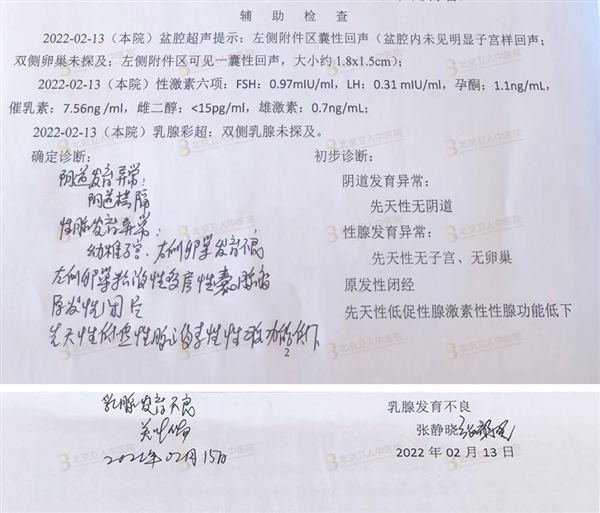 辅助检查
2022-02-13（本院）盆腔超声提示：左侧附件区囊性回声（盆腔内未见明显子宫样回声；
双侧卵巢未探及；左侧附件区可见一囊性回声，大小约 1.8x1.5cm）；
2022-02-13（本院）性激素六项：FSH：0.97mIU/ml，LH：0.31 mIU/ml，孕酮：1.1ng/mL，
催乳素：7.56ng /ml，雌二醇：<15pg/ml，雄激素：0.7ng/mL；
2022-02-13（本院）乳腺彩超：双侧乳腺未探及。
确定诊断：
阴道发育异常：
阴道横隔
性腺发育异常：
幼稚子宫、右侧卵巢发育不良
左侧卵巢粘液性交界性囊腺瘤
原发性闭经
先天性低促性腺激素性性腺功能低下
初步诊断：
阴道发育异常：
先天性无阴道
性腺发育异常：
先天性无子宫、无卵巢
原发性闭经
先天性低促性腺激素性性腺功能低下
乳腺发育不良
2022年02月15日
乳腺发育不良
张静晓
2022 年 02 月 13 日
北京卫人中医院